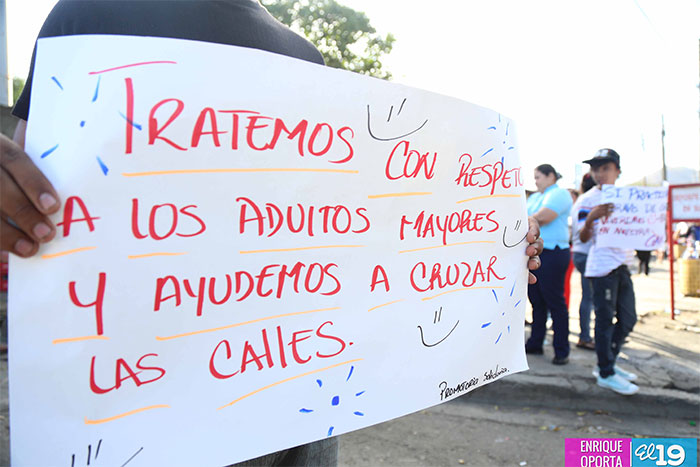 TRATEMOS CON RESPETO
A LOS ADUITOS MAYORES
Y AYUDEMOS A CRUZAR
LAS CALLES.
PROMOTORIA Solidaria.
SI
EN NUESTRAS
ENRIQUE
OPORTA
El 19